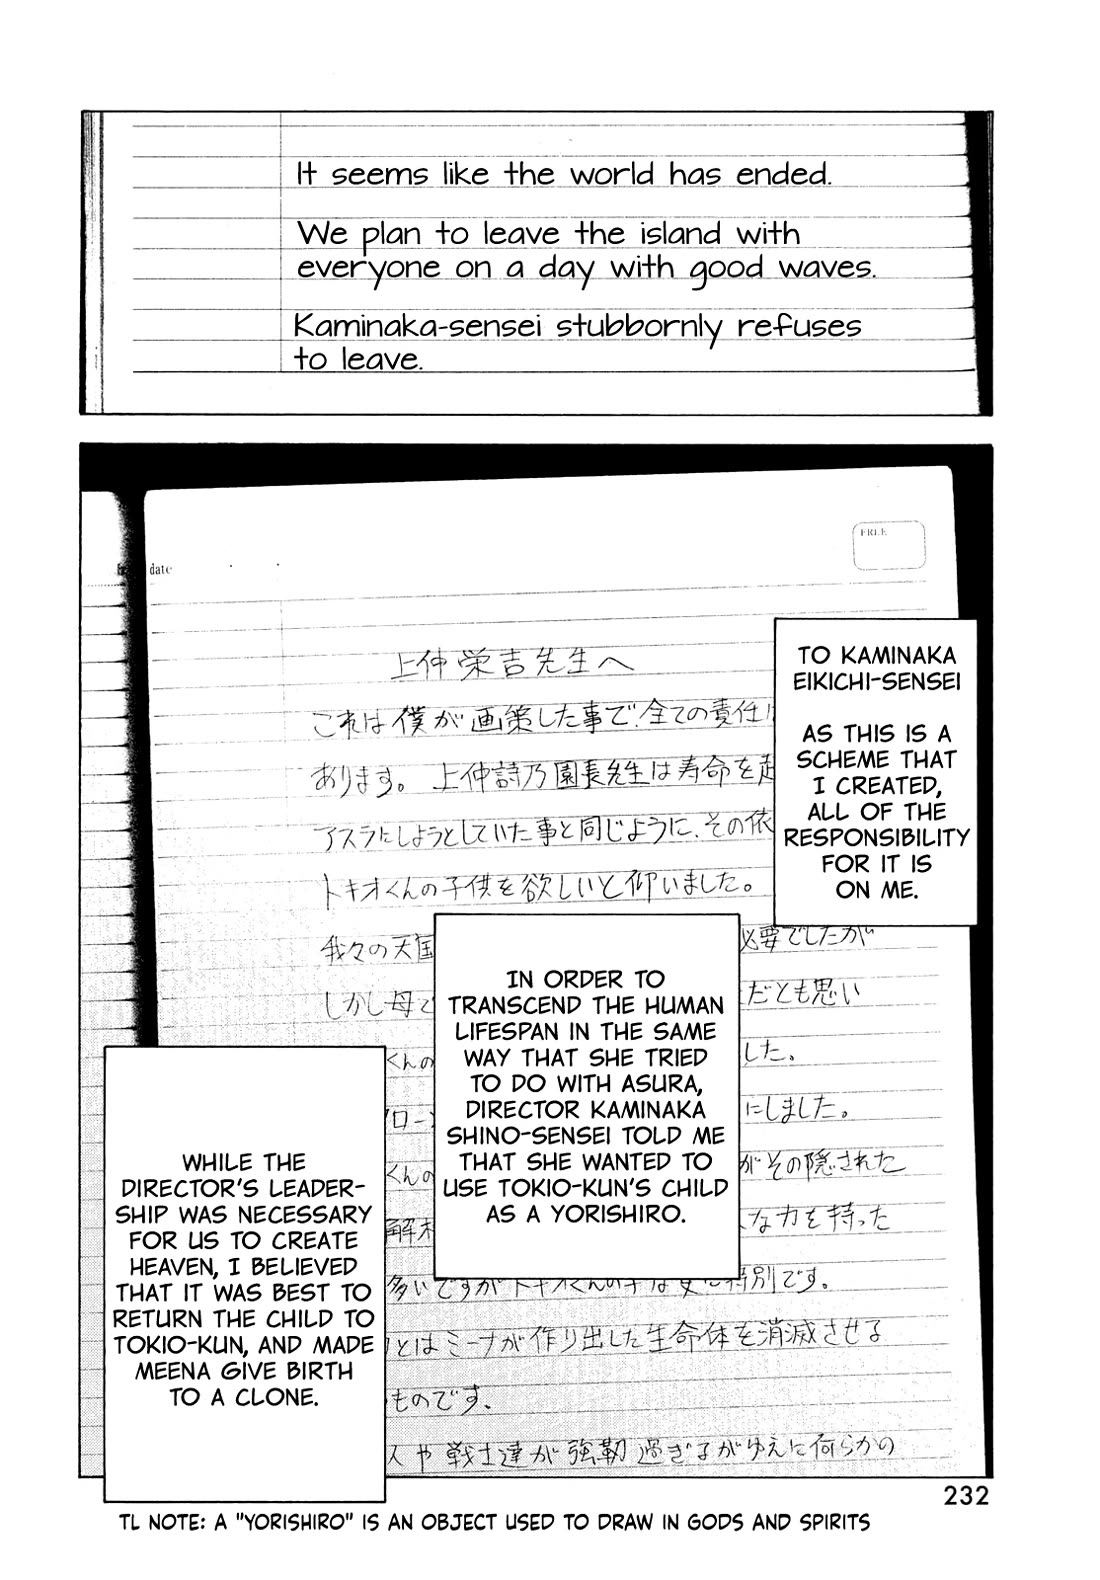 It seems like the world has ended.
We plan to leave the island with
everyone on a day with good waves.
Kaminaka-sensei stubbornly refuses
to leave.
FREE
date
上仲栄吉先生へ
これは僕が画策した事で、全ての責任は
あります。上仲詩乃園長先生は寿命を
アスラにしようとしていた事と同じように、その依
トキオくんの子供を欲しいと仰いました。
TO KAMINAKA
EIKICHI-SENSEI
AS THIS IS A
SCHEME THAT
I CREATED,
ALL OF THE
RESPONSIBILITY
FOR IT IS
ON ME.
我々の天国
必要でしたが
しかし母
だとも思い
くんの
した。
ロー
にしました。
くんの
がその隠された
解
な力を持った
多いですがトキオくんの子は 特別です。
とはミーナが作り出した生命体を消滅させる
ものです。
や戦士達が強靭過ぎるがゆえに何らかの
IN ORDER TO
TRANSCEND THE HUMAN
LIFESPAN IN THE SAME
WAY THAT SHE TRIED
TO DO WITH ASURA,
DIRECTOR KAMINAKA
SHINO-SENSEI TOLD ME
THAT SHE WANTED TO
USE TOKIO-KUN'S CHILD
AS A YORISHIRO.
WHILE THE
DIRECTOR'S LEADER-
SHIP WAS NECESSARY
FOR US TO CREATE
HEAVEN, I BELIEVED
THAT IT WAS BEST TO
RETURN THE CHILD TO
TOKIO-KUN, AND MADE
MEENA GIVE BIRTH
TO A CLONE.
232
TL NOTE: A "YORISHIRO" IS AN OBJECT USED TO DRAW IN GODS AND SPIRITS